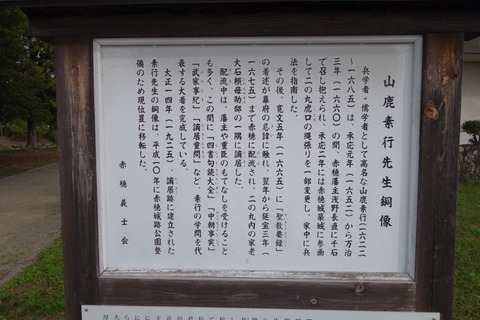 山鹿素行先生銅像
兵学者・儒学者として高名な山鹿素行(一六二二
〜一六八五)は、承応元年(一六五二)から万治
三年(一六六〇)の間、赤穂藩主浅野長直に千石
で召し抱えられ、承応二年には赤穂城築城に参画
して二の丸虎口の縄張りを一部変更し、家中に兵
法を指南した。
その後、寛文五年(一六六五)に「聖教要録」
の著述が幕府の忌諱に触れ、翌年から延宝三年(
一六七五)まで赤穂に配流され、二の丸内の家老
大石頼母助邸の一隅に謫居した。
配流中は、藩主や重臣のもてなしを受けること
も多く、この間に「四書句読大全」「中朝事実」
「武家事紀」「謫居童問」など、素行の学問を代
表する大着を完成している。
大正一四年(一九二五)、謫居跡に建立された
素行先生の銅像は、平成一〇年に赤穂城跡公園整
備のため現位置に移転した。
赤穂義士会